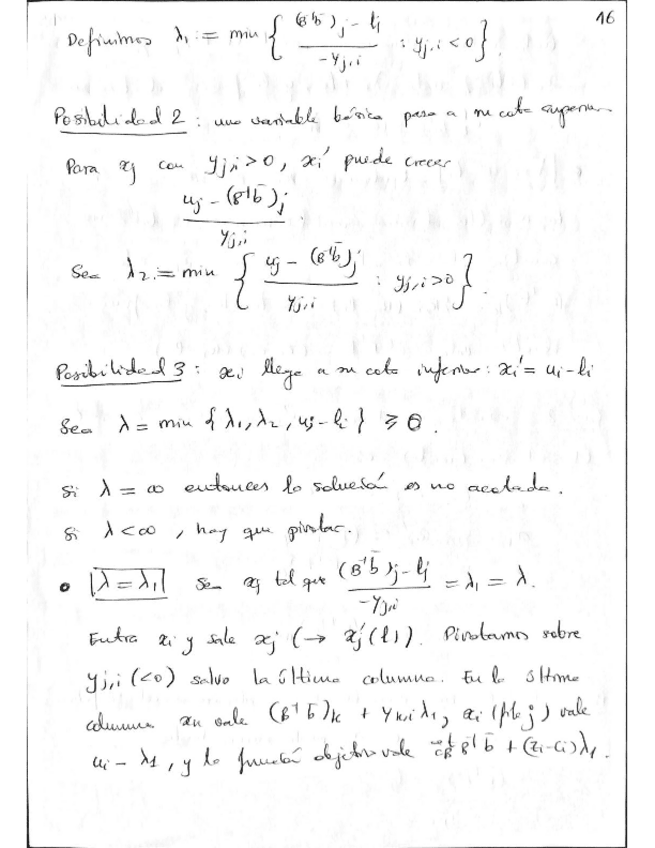 16
Definimos λ₁ := min { ((B⁻¹b̄)_j − l_j) / (−y_{j,i}) : y_{j,i} < 0 }.
Posibilidad 2 : una variable básica pasa a su cota superior
Para x_j con y_{j,i} > 0, x_i' puede crecer
(u_j − (B⁻¹b̄)_j) / y_{j,i}
Sea λ₂ := min { (u_j − (B⁻¹b̄)_j) / y_{j,i} : y_{j,i} > 0 }.
Posibilidad 3 : x_i llega a su cota inferior : x_i' = u_i − l_i
Sea λ = min { λ₁, λ₂, u_j − l_i } ≥ 0.
Si λ = ∞ entonces la solución es no acotada.
Si λ < ∞, hay que pivotar.
• |λ = λ₁| Sea x_j tal que ((B⁻¹b̄)_j − l_j) / (−y_{j,i}) = λ₁ = λ.
Entra x_i y sale x_j (→ x_j'(l)). Pivotamos sobre
y_{j,i} (<0) salvo la última columna. En la última
columna x_k vale (B⁻¹b̄)_k + y_{k,i} λ₁, x_i (fila j) vale
u_i − λ₁, y la función objetivo vale c_B^t B⁻¹b̄ + (z_i − c_i)λ₁.